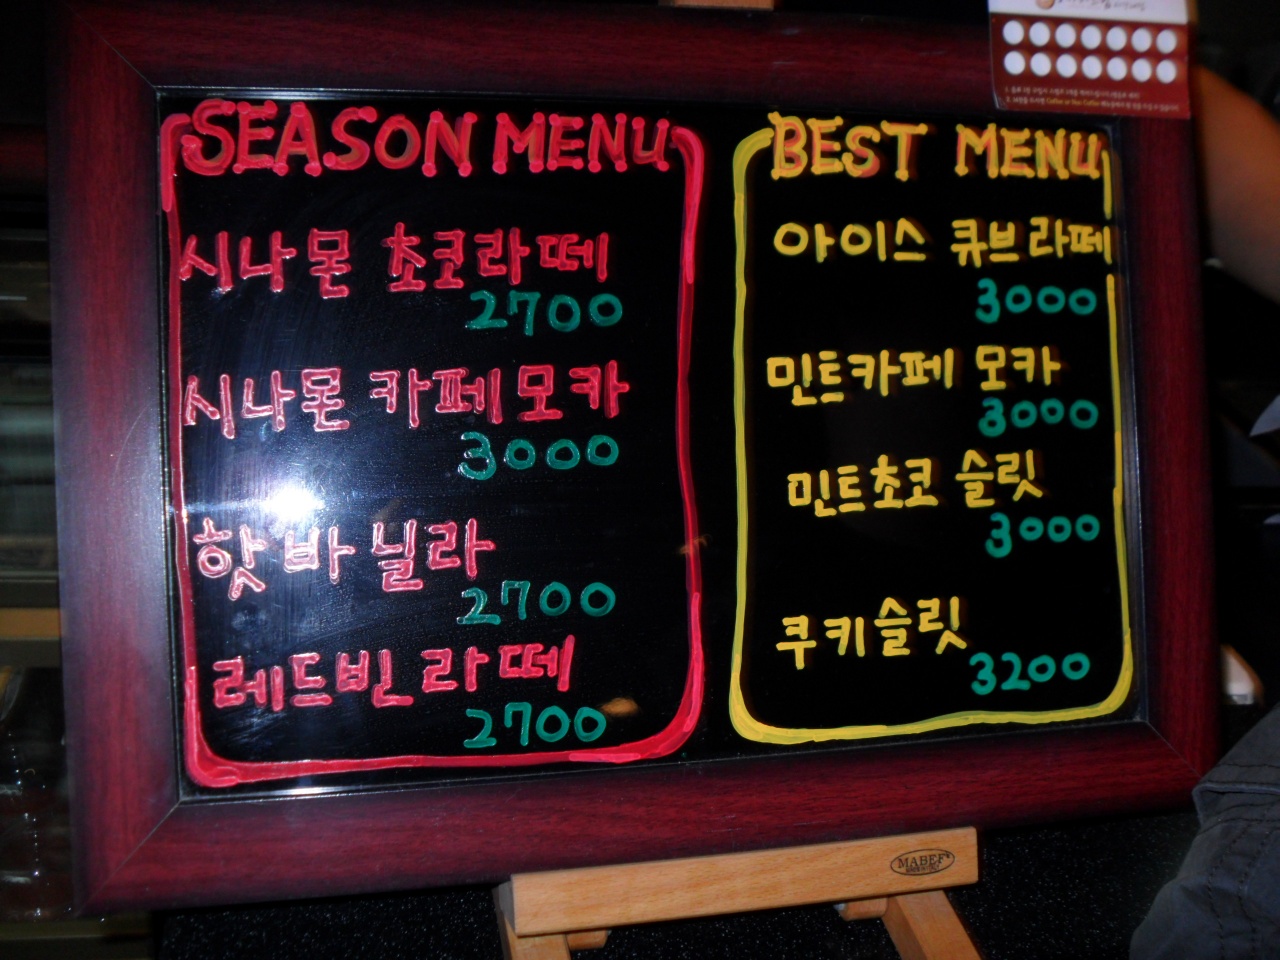 SEASON MENU
시나몬 초코라떼
2700
시나몬 카페모카
3000
핫 바닐라
2700
레드빈 라떼
2700
BEST MENU
아이스 큐브라떼
3000
민트카페 모카
3000
민트초코 슬릿
3000
쿠키슬릿
3200
MABEF